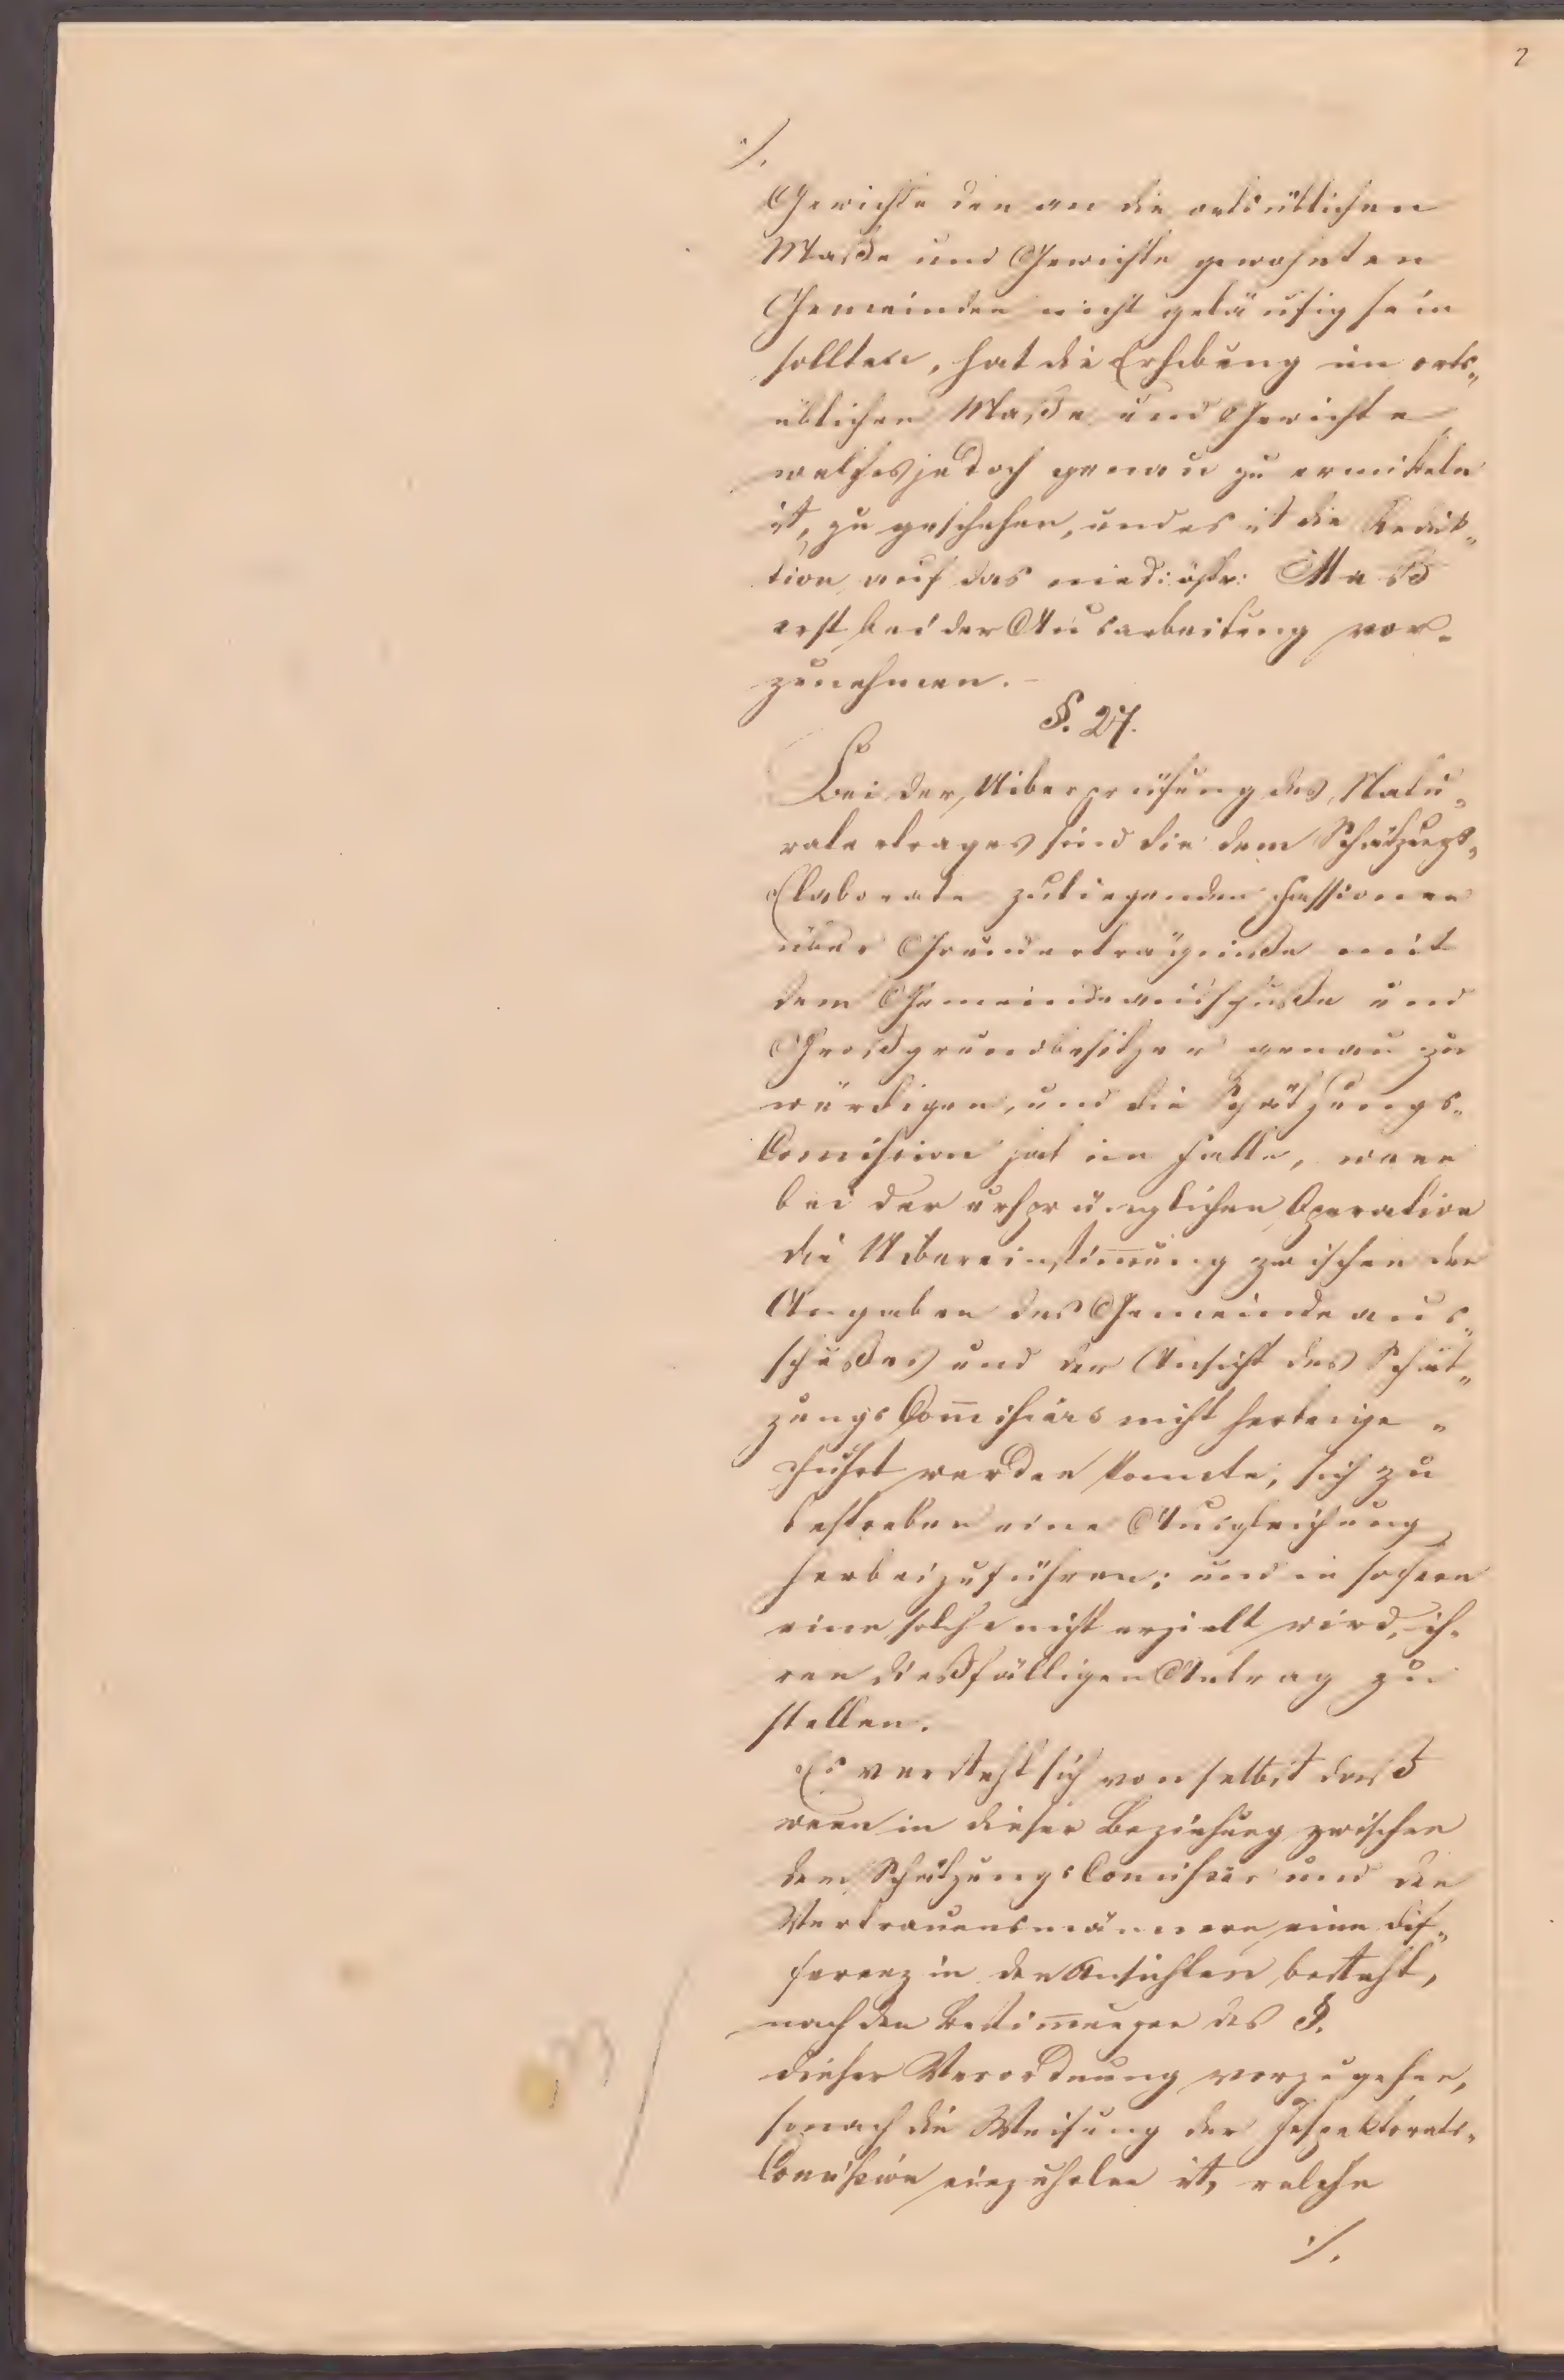 2
./.
Gewichte den an die ortsüblichen
Maße und Gewichte gewohnten
Gemeinden nicht geläufig sein
sollten, hat die Erhebung im orts„
üblichen Maße und Gewichte,
welches jedoch genau zu ermitteln
ist, zu geschehen, und es ist die Reduk„
tion auf das nied: östr: Maß
erst bei der Ausarbeitung vor„
zunehmen. –
§. 27.
Bei der Uiberprüfung des Natu„
ralertrages sind die dem Schätzungs„
Elaborate zuliegenden Fassionen
über Grunderträgniße mit
dem Gemeindeausschuße und
Großgrundbesitzer genau zu
würdigen, und die Schätzungs„
Comission hat im Falle, wenn
bei der ursprünglichen Operation
die Uibereinstim̄ung zwischen den
Angaben des Gemeindeaus„
schußes und der Ansicht des Schät„
zungs Com̄issärs nicht herbeige„
führt werden konnte, sich zu
bestreben eine Ausgleichung
herbeizuführen; und in sofern
eine solche nicht erzielt wird, ih„
ren dießfälligen Antrag zu
stellen.
Es versteht sich von selbst daß
wenn in dieser Beziehung zwischen
dem Schätzungs Comissär und den
Vertrauensmännern eine Dif„
ferenz in den Ansichten besteht,
nach den Bestim̄ungen des §.
dieser Verordnung vorzugehen,
sonach die Weisung der Inspektorats„
Comission einzuholen ist, welche
./.